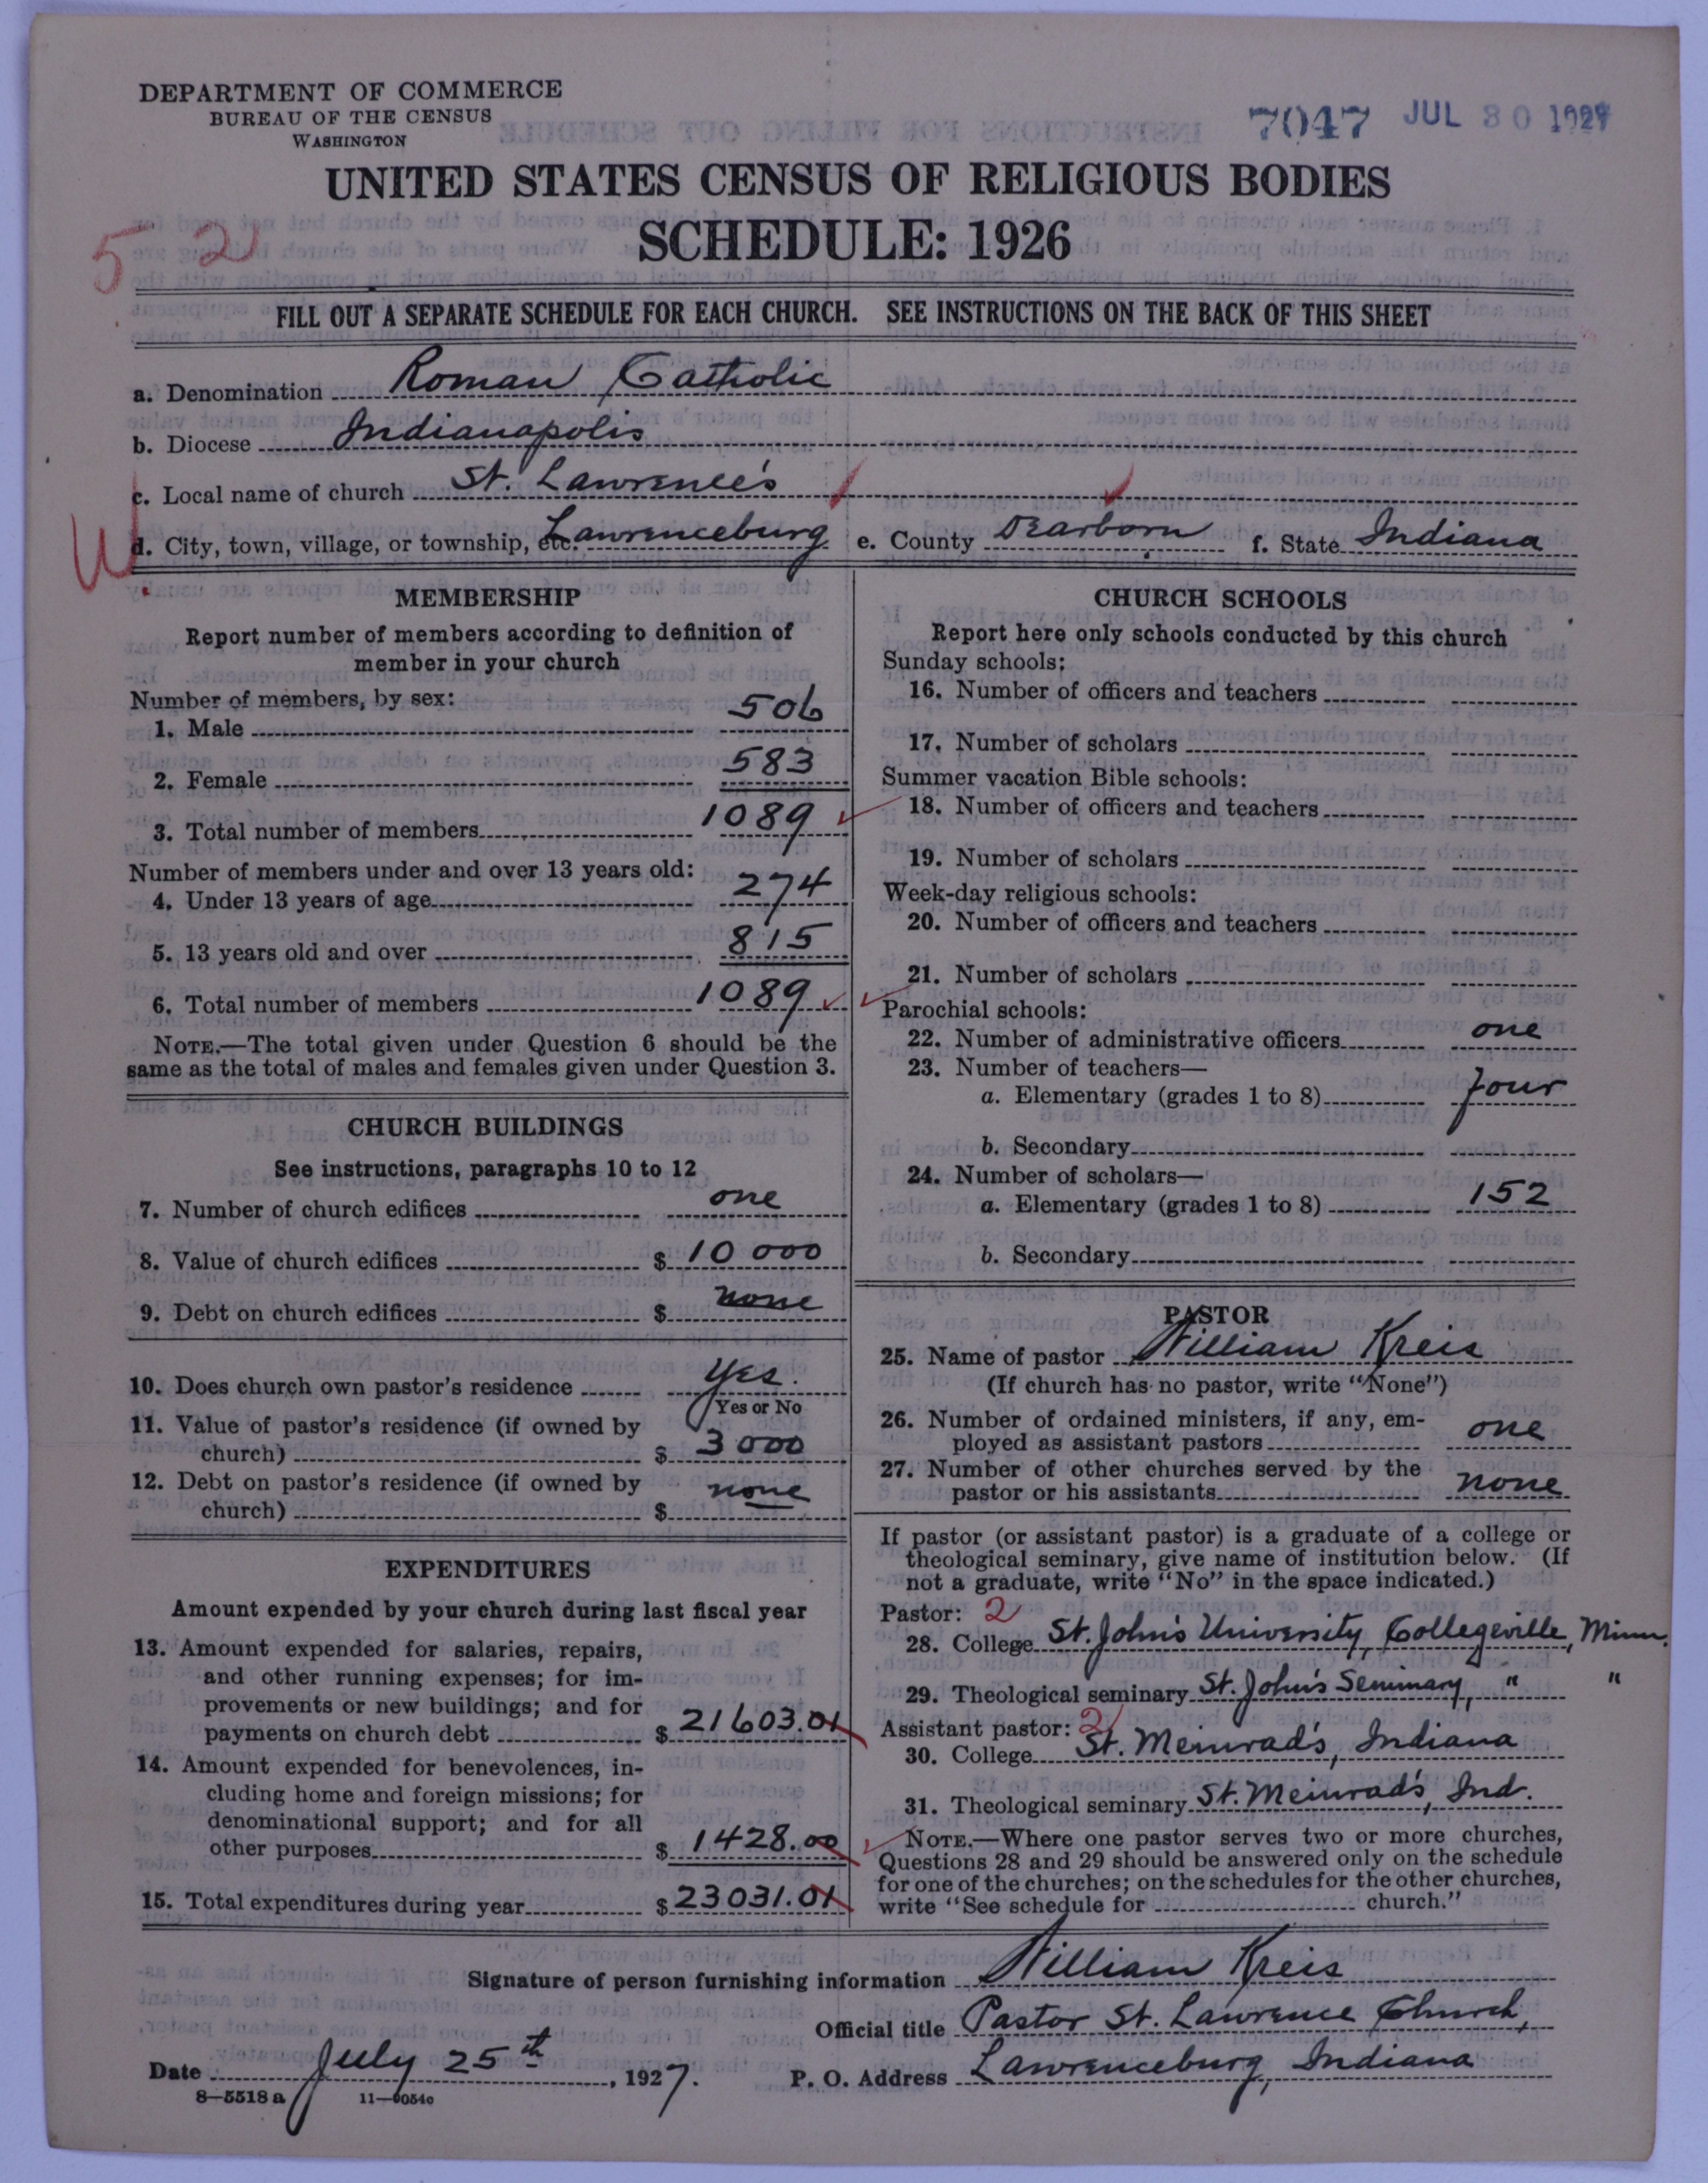 DEPARTMENT OF COMMERCE
BUREAU OF THE CENSUS
WASHINGTON
7047 JUL 30 1927
UNITED STATES CENSUS OF RELIGIOUS BODIES
SCHEDULE: 1926
52
FILL OUT A SEPARATE SCHEDULE FOR EACH CHURCH. SEE INSTRUCTIONS ON THE BACK OF THIS SHEET
a. Denomination Roman Catholic
b. Diocese Indianapolis
c. Local name of church St. Lawrence's
W
d. City, town, village, or township, etc. Lawrenceburg e. County Dearborn f. State Indiana
MEMBERSHIP
Report number of members according to definition of
member in your church
Number of members, by sex:
1. Male 506
2. Female 583
3. Total number of members 1089
Number of members under and over 13 years old:
4. Under 13 years of age 274
5. 13 years old and over 815
6. Total number of members 1089
NOTE.—The total given under Question 6 should be the
same as the total of males and females given under Question 3.
CHURCH BUILDINGS
See instructions, paragraphs 10 to 12
7. Number of church edifices one
8. Value of church edifices $ 10 000
9. Debt on church edifices $ none
10. Does church own pastor's residence Yes.
Yes or No
11. Value of pastor's residence (if owned by
church) $ 3 000
12. Debt on pastor's residence (if owned by
church) $ none
EXPENDITURES
Amount expended by your church during last fiscal year
13. Amount expended for salaries, repairs,
and other running expenses; for im-
provements or new buildings; and for
payments on church debt $ 21603.01
14. Amount expended for benevolences, in-
cluding home and foreign missions; for
denominational support; and for all
other purposes $ 1428.00
15. Total expenditures during year $ 23031.01
CHURCH SCHOOLS
Report here only schools conducted by this church
Sunday schools:
16. Number of officers and teachers
17. Number of scholars
Summer vacation Bible schools:
18. Number of officers and teachers
19. Number of scholars
Week-day religious schools:
20. Number of officers and teachers
21. Number of scholars
Parochial schools:
22. Number of administrative officers one
23. Number of teachers—
a. Elementary (grades 1 to 8) four
b. Secondary
24. Number of scholars—
a. Elementary (grades 1 to 8) 152
b. Secondary
PASTOR
25. Name of pastor William Kreis
(If church has no pastor, write "None")
26. Number of ordained ministers, if any, em-
ployed as assistant pastors one
27. Number of other churches served by the
pastor or his assistants none
If pastor (or assistant pastor) is a graduate of a college or
theological seminary, give name of institution below. (If
not a graduate, write "No" in the space indicated.)
Pastor: 2
28. College St. John's University, Collegeville, Minn.
29. Theological seminary St. John's Seminary, " "
Assistant pastor: 2
30. College St. Meinrad's, Indiana
31. Theological seminary St. Meinrad's, Ind.
NOTE.—Where one pastor serves two or more churches,
Questions 28 and 29 should be answered only on the schedule
for one of the churches; on the schedules for the other churches,
write "See schedule for church."
Signature of person furnishing information William Kreis
Official title Pastor St. Lawrence Church,
Date July 25th, 1927. P. O. Address Lawrenceburg, Indiana
8—5518 a 11—9054c